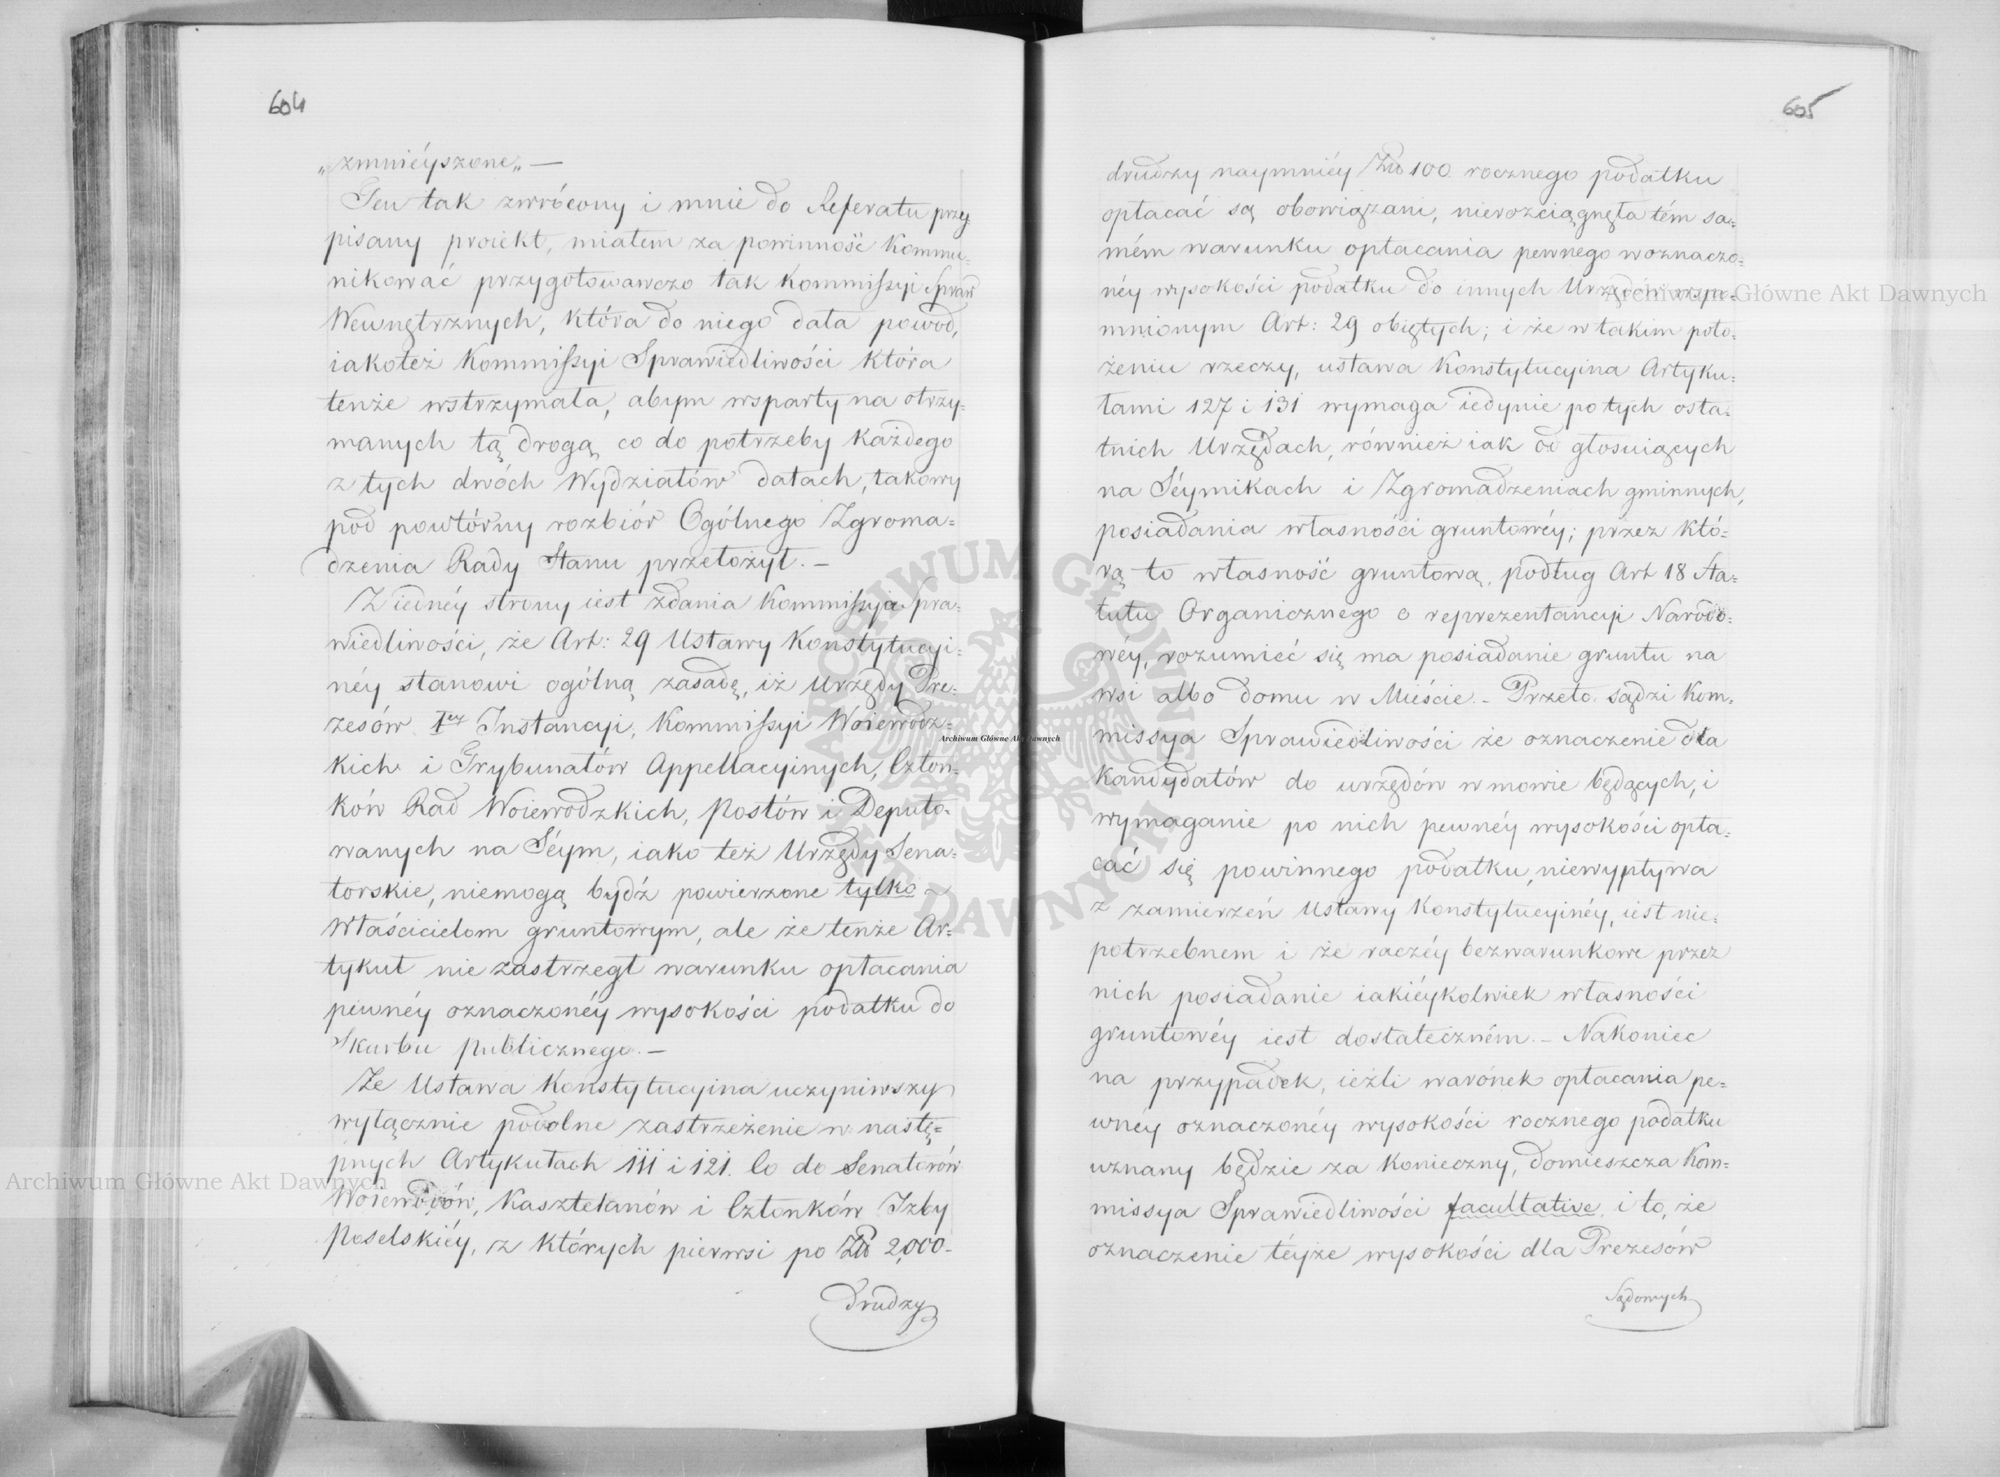 604
„zmnieyszone„ —
Ten tak zwrócony i mnie do Referatu przy
pisany proiekt, miałem za powinność Kommu=
nikować przygotowawczo tak Kommissyi Spraw
Wewnętrznych, która do niego dała powód,
iakoteż Kommissyi Sprawiedliwości która
tenże wstrzymała, abym wsparty na otrzy=
manych tą drogą co do potrzeby każdego
z tych dwóch Wydziałów datach, takowy
pod powtórny rozbiór Ogólnego Zgroma=
dzenia Rady Stanu przełożył. —
Z iednéy strony iest zdania Kommissyja Spra=
wiedliwości, że Art: 29 Ustawy Konstytucyi=
néy stanowi ogólną zasadę, iż Urzędy Pre=
zesów Iéy Instancyi, Kommissyi Woiewódz=
kich i Trybunałów Appellacyinych, Człon=
ków Rad Woiewodzkich, Posłów i Deputo=
wanych na Séym, iako też Urzędy Sena=
torskie, niemogą bydź powierzone tylko
Właścicielom gruntowym, ale że tenże Ar=
tykuł nie zastrzegł warunku opłacania
pewnéy oznaczonéy wysokości podatku do
Skarbu publicznego. —
Że Ustawa Konstytucyina uczyniwszy
wyłącznie podobne zastrzeżenie w nastę=
pnych Artykułach 111 i 121. Co do Senatorów
Woiewodów, Kasztelanów i Członków Izby
Poselskiéy, z których pierwsi po Złp 2,000-
drudzy
605
drudzy naymniéy Złp 100 rocznego podatku
opłacać są obowiązani, nierozciągnęła tém sa=
mém warunku opłacania pewnego woznaczo=
néy wysokości podatku do innych Urzędów wspo=
mnionym Art: 29 obiętych; i że w takim poło=
żeniu rzeczy, ustawa Konstytucyina Artyku=
łami 127 i 131 wymaga iedynie po tych osta=
tnich Urzędach, również iak od głosuiących
na Séymikach i Zgromadzeniach gminnych,
posiadania własności gruntowéy; przez któ=
rą to własność gruntową, podług Art 18 Sta=
tutu Organicznego o reprezentancyi Narodo=
wéy, rozumieć się ma posiadanie gruntu na
wsi albo domu w Mieście. – Przeto sądzi Kom=
missya Sprawiedliwości że oznaczenie dla
kandydatów do urzędów w mowie będących, i
wymaganie po nich pewnéy wysokości opła=
cać się powinnego podatku, niewypływa
z zamierzeń Ustawy Konstytucyinéy, iest nie=
potrzebnem i że raczéy bezwarunkowe przez
nich posiadanie iakiéykolwiek własności
gruntowéy iest dostateczném. – Nakoniec
na przypadek, ieżli warónek opłacania pe=
wnéy oznaczonéy wysokości rocznego podatku
uznany będzie za konieczny, domieszcza Kom=
missya Sprawiedliwości facultative, i to, że
oznaczenie téyże wysokości dla Prezesów
Sądowych
Archiwum Główne Akt Dawnych
Archiwum Główne Akt Dawnych
Archiwum Główne Akt Dawnych
ARCHIWUM GŁÓWNE AKT DAWNYCH